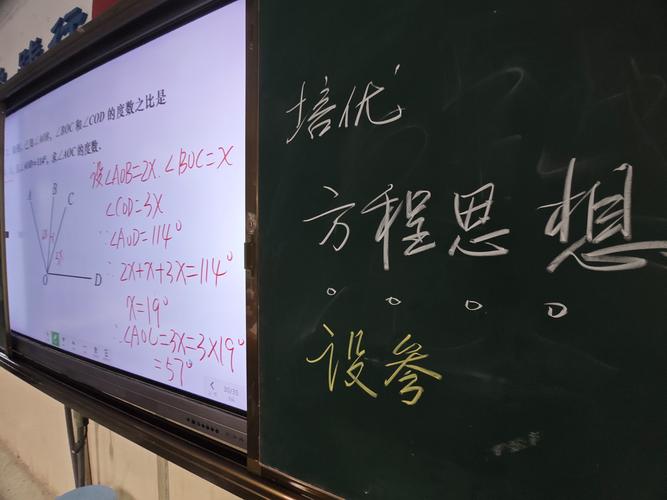 践行
∠BOC和∠COD的度数之比是
求∠AOC的度数.
A
B
C
O
D
2x
x
3x
设∠AOB=2x.∠BOC=x
∠COD=3x
∵∠AOD=114°
∴2x+x+3x=114°
x=19°
∴∠AOC=3x=3×19°
=57°
30/35
培优
方程思想
设参